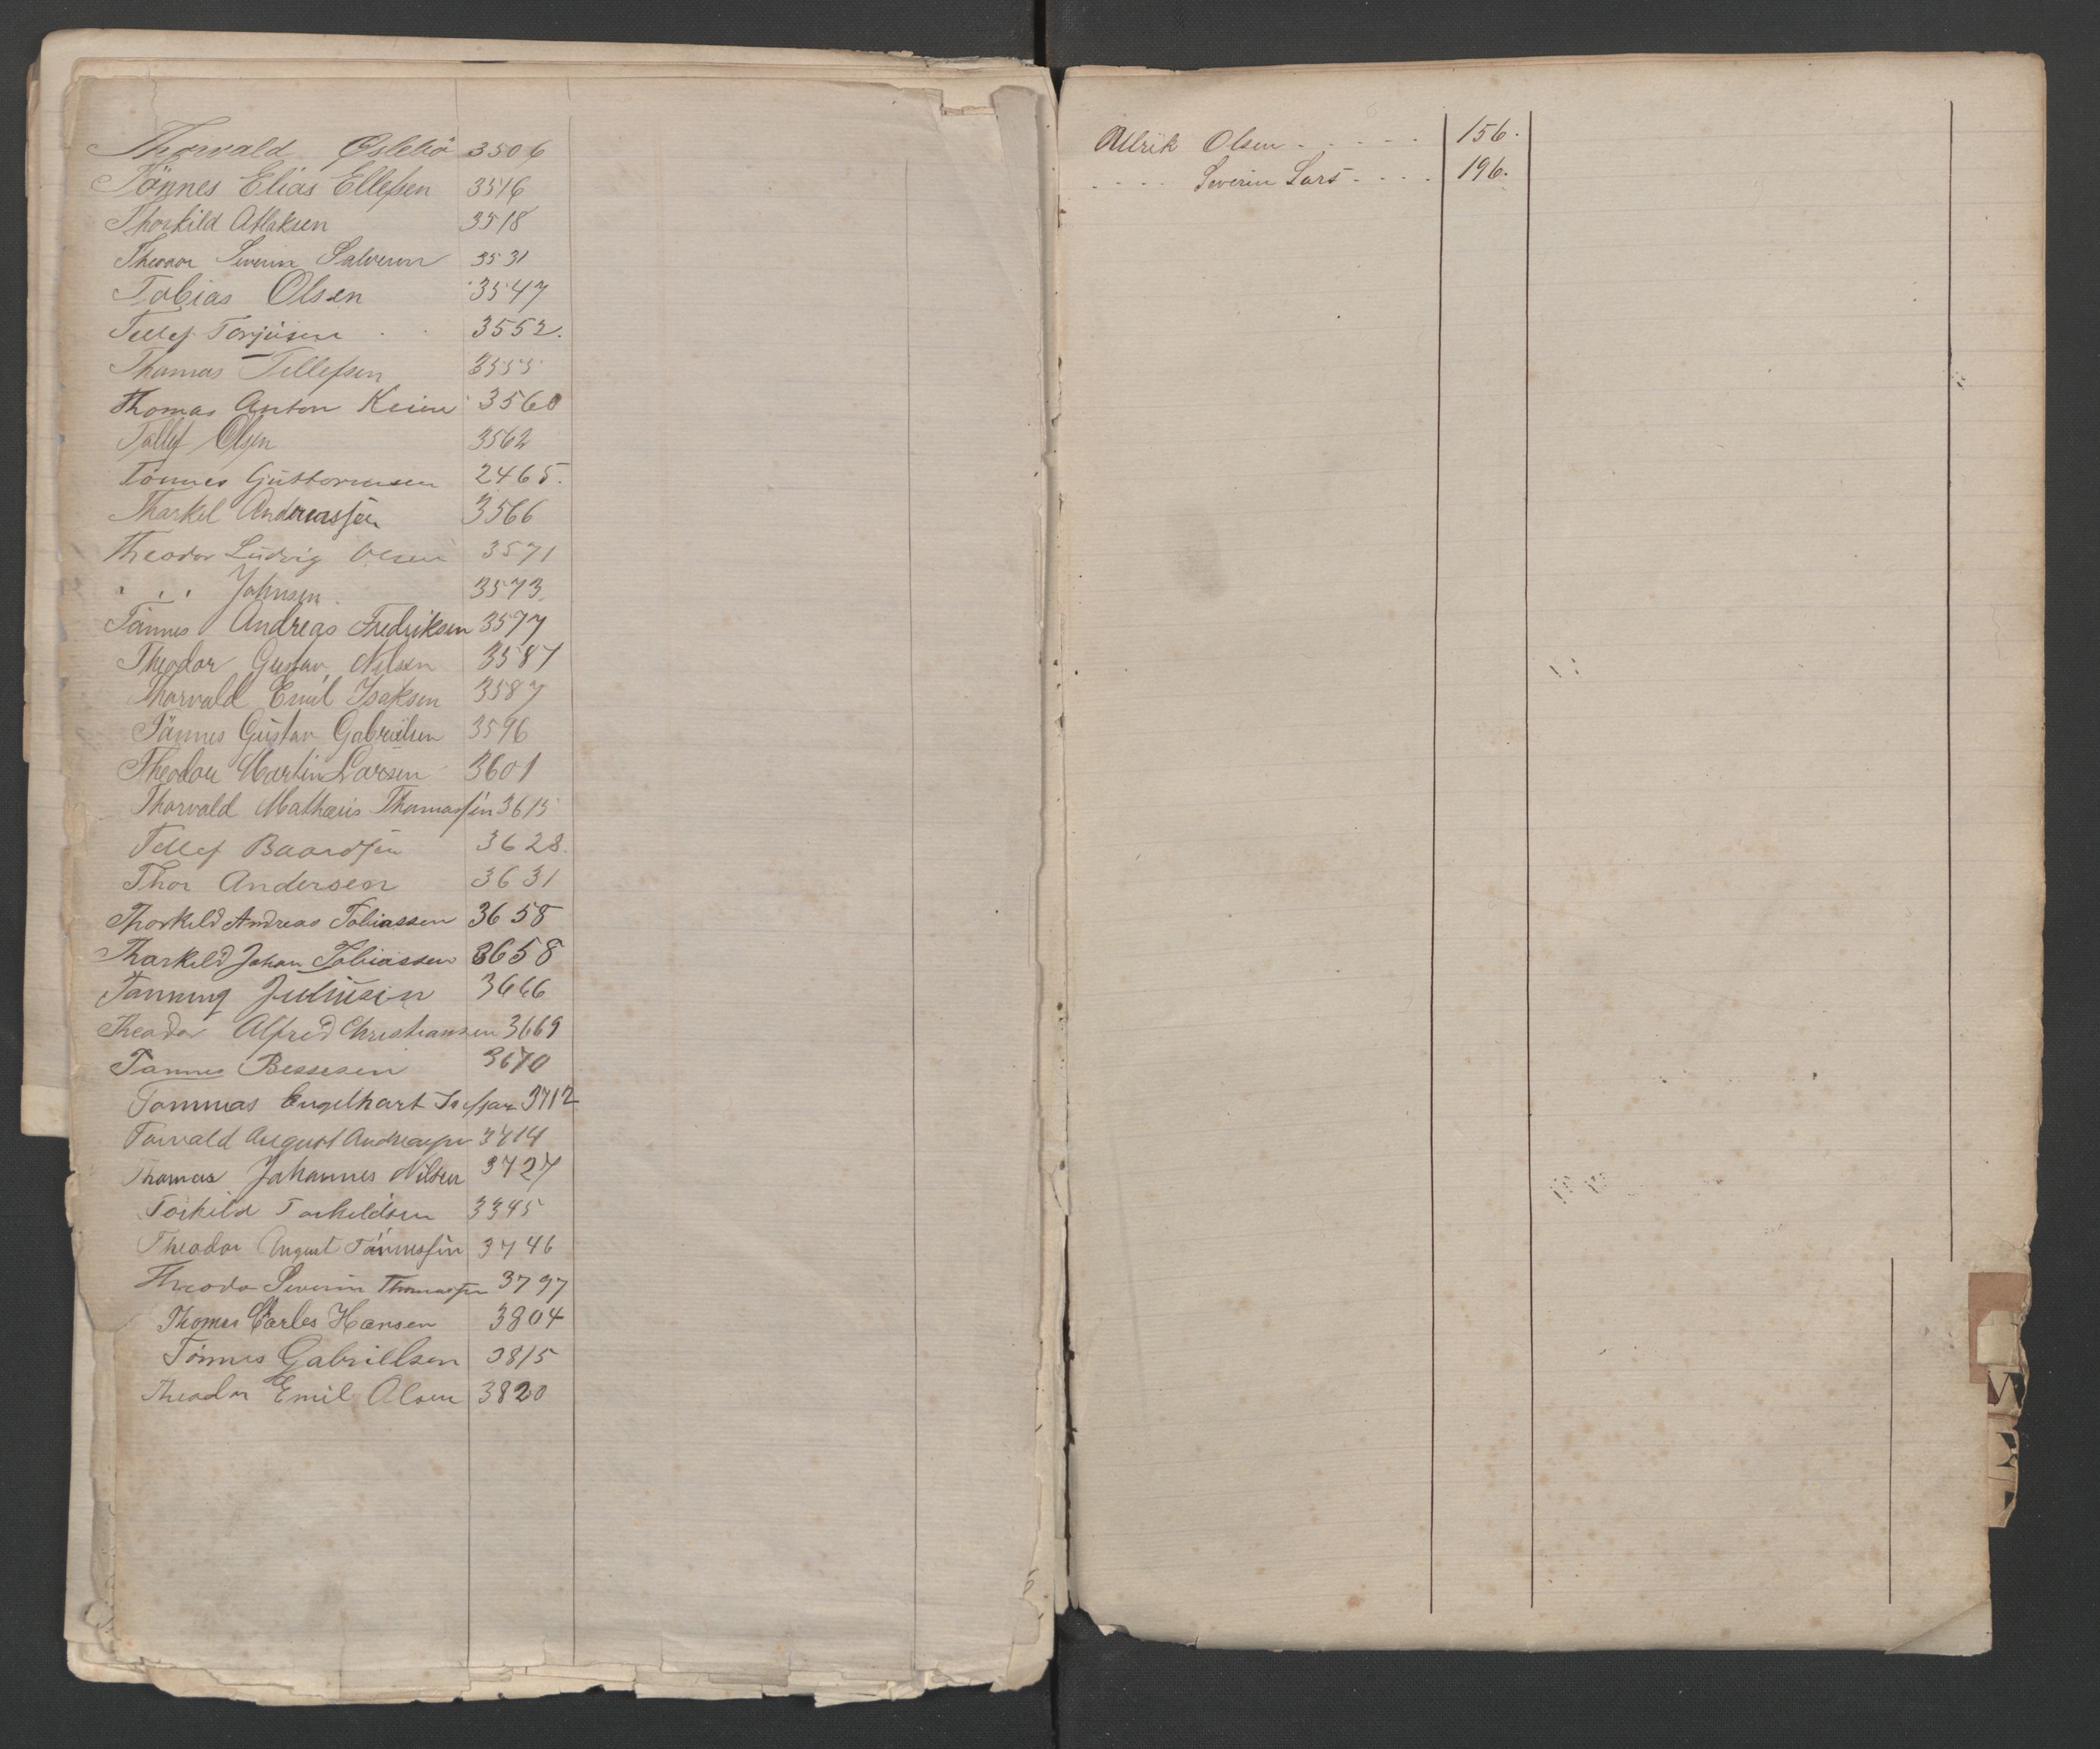 Thorvald Øslebö 3506
Tönnes Elias Ellefsen 3516
Thorkild Atlaksen 3518
Theodor Severin Salvesen 3531
Tobias Olsen 3547
Tellef Torjüsen 3552.
Thomas Tellefsen 3555
Thomas Anton Keim 3560
Tallef Olsen 3562
Tönnes Güttormsen 2465.
Tharkel Andreassen 3566
Theodor Ludvig Olsen 3571
" " " Johnsen 3573
Tönnes Andreas Fredriksen 3577
Theodor Gustav Nilsen 3587
Thorvald Emil Isaksen 3587
Tönnes Gustav Gabrielsen 3596
Theodor Martin Larsen 3601
Thorvald Mathæus Thomassen 3615
Tellef Baardsen 3628.
Thor Andersen 3631
Thorkild Andreas Tobiassen 3658
Tharkild Johan Tobiassen 3658
3666
Theodor Alfred Christiansen 3669
Tønnes Bessesen 3670
Tommas Engelhart 3712
Torvald August Andreassen 3714
Thomas Johannes Nilsen 3727
Torkild Torkildsen 3345
Theodor August Tönnessen 3746
Theodor Severin Thomassen 3797
Thomas Carles Hansen 3804
Tönnes Gabrielsen 3815
Theodor Emil Olsen 3820
Ullrik Olsen - - - - - 156.
- - - - Severin Lars - - - - 196.
W